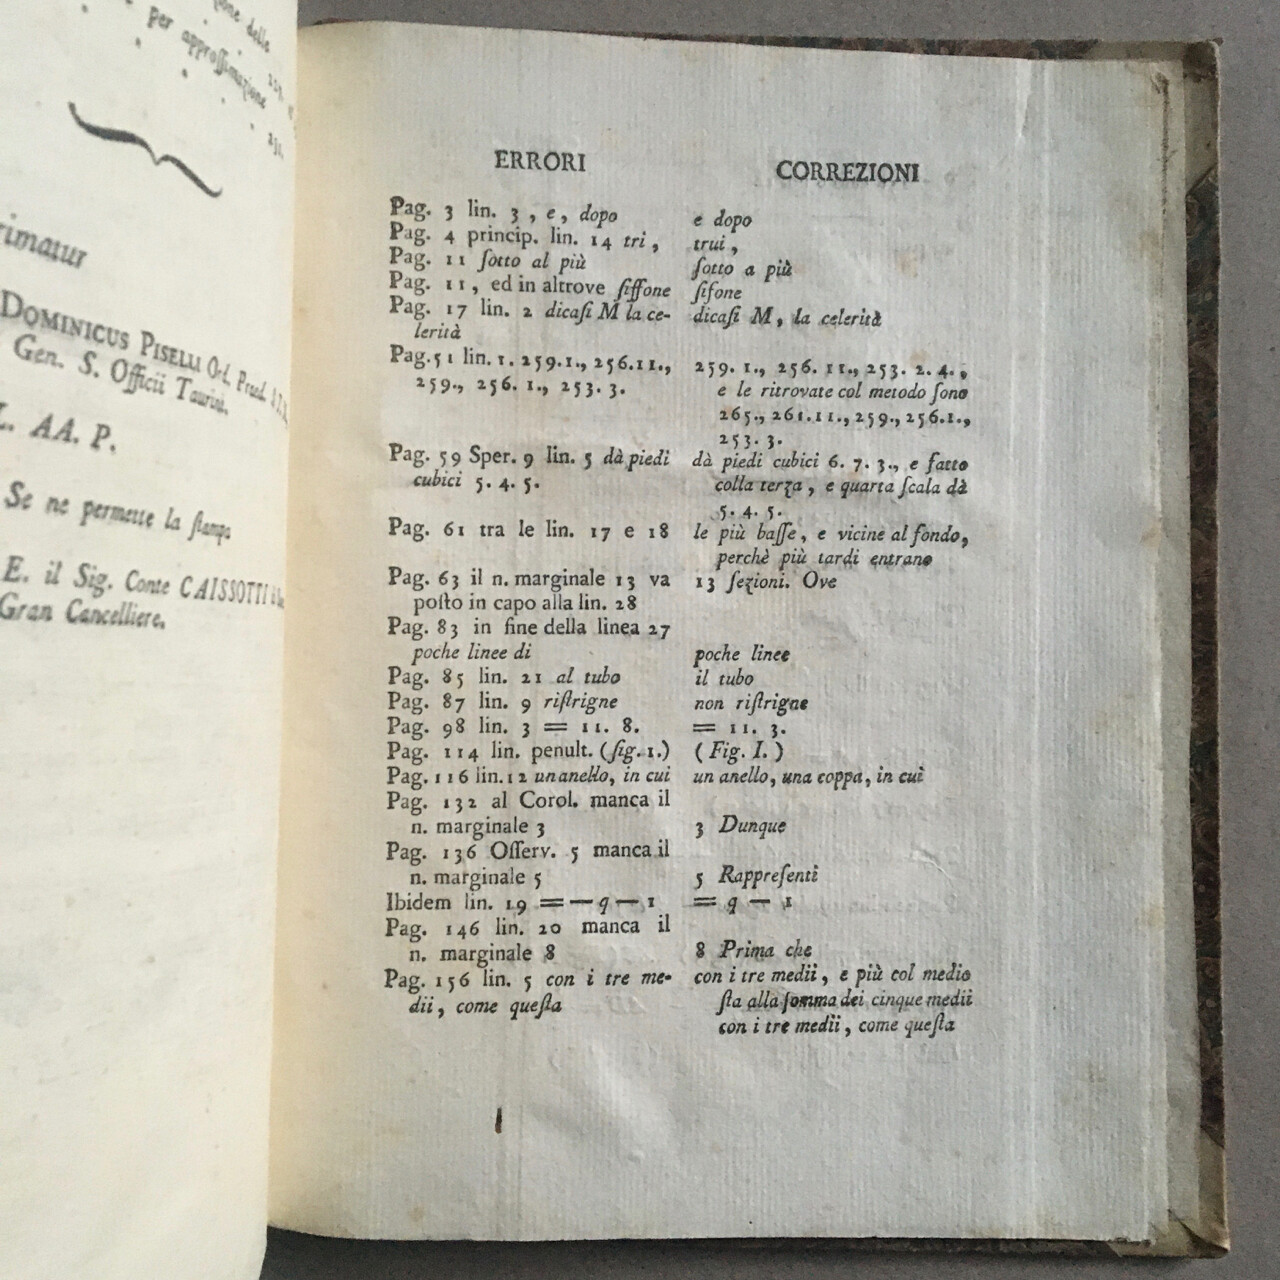 per approſſimazione 231.
Dominicus Piselli Ord. Præd.
Gen. S. Officii Taurini.
AA. P.
Se ne permette la ſtampa
E. il Sig. Conte CAISSOTTI
Gran Cancelliere.
ERRORI
Pag. 3 lin. 3, e, dopo
Pag. 4 princip. lin. 14 tri,
Pag. 11 ſotto al più
Pag. 11, ed in altrove ſiffone
Pag. 17 lin. 2 dicaſi M la ce-
lerità
Pag. 51 lin. 1. 259.1., 256.11.,
259., 256. 1., 253. 3.
Pag. 59 Sper. 9 lin. 5 dà piedi
cubici 5. 4. 5.
Pag. 61 tra le lin. 17 e 18
Pag. 63 il n. marginale 13 va
poſto in capo alla lin. 28
Pag. 83 in fine della linea 27
poche linee di
Pag. 85 lin. 21 al tubo
Pag. 87 lin. 9 riſtrigne
Pag. 98 lin. 3 = 11. 8.
Pag. 114 lin. penult. (fig. 1.)
Pag. 116 lin. 12 un anello, in cui
Pag. 132 al Corol. manca il
n. marginale 3
Pag. 136 Oſſerv. 5 manca il
n. marginale 5
Ibidem lin. 19 = — q — 1
Pag. 146 lin. 20 manca il
n. marginale 8
Pag. 156 lin. 5 con i tre me-
dii, come queſta
CORREZIONI
e dopo
trui,
ſotto a più
ſifone
dicaſi M, la celerità
259. 1., 256. 11., 253. 2. 4.,
e le ritrovate col metodo ſono
265., 261.11., 259., 256.1.,
253. 3.
dà piedi cubici 6. 7. 3., e fatto
colla terza, e quarta ſcala dà
5. 4. 5.
le più baſſe, e vicine al fondo,
perchè più tardi entrano
13 ſezioni. Ove
poche linee
il tubo
non riſtrigne
= 11. 3.
(Fig. I.)
un anello, una coppa, in cui
3 Dunque
5 Rappreſenti
= q — 1
8 Prima che
con i tre medii, e più col medio
ſta alla ſomma dei cinque medii
con i tre medii, come queſta